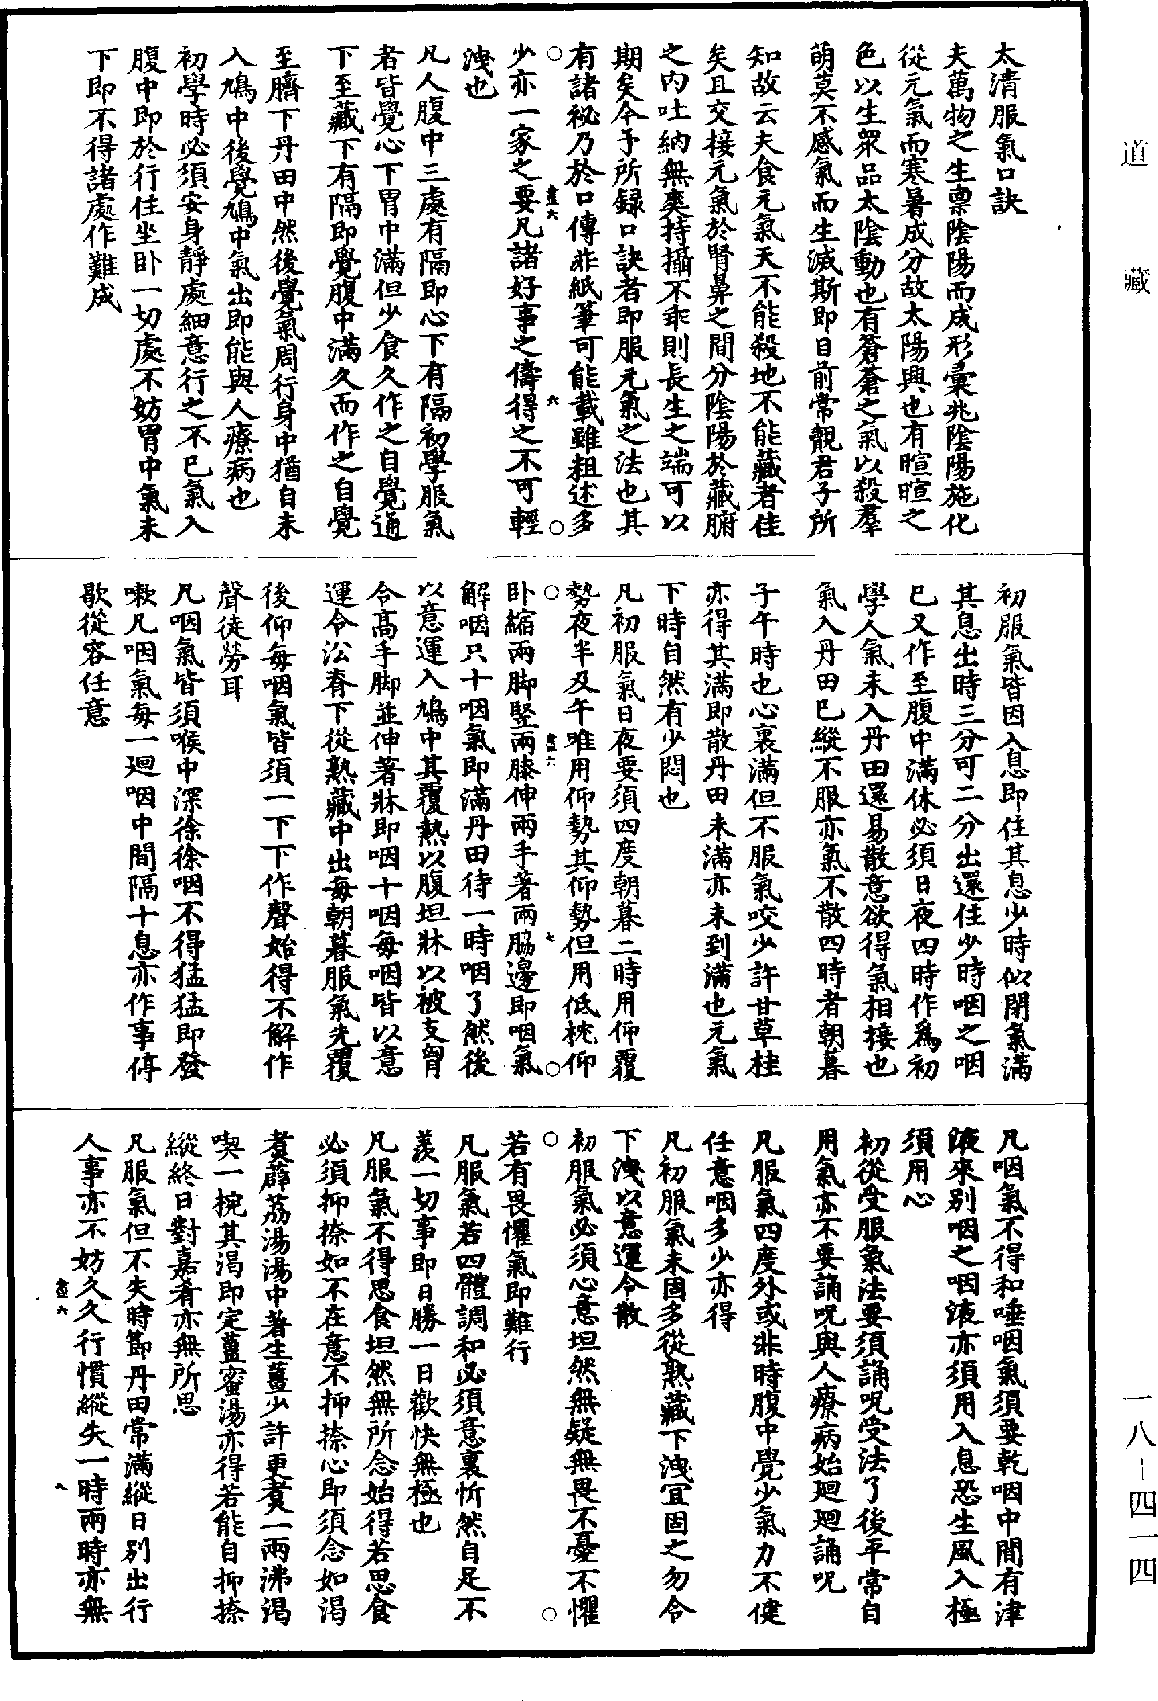 太清服氣口訣
夫萬物之生稟陰陽而成形橐兆陰陽施化
從元氣而寒暑成分故太陽興也有暄暄之
色以生衆品太陰動也有蒼蒼之氣以殺羣
萌莫不感氣而生滅斯即目前常覩君子所
知故云夫食元氣天不能殺地不能藏者佳
矣且交接元氣於腎鼻之間分陰陽於藏腑
之内吐納無爽持攝不乖則長生之端可以
期矣今予所録口訣者即服元氣之法也其
有諸祕乃於口傳非紙筆可能載雖粗述多
少亦一家之要凡諸好事之儔得之不可輕
洩也
凡人腹中三處有隔即心下有隔初學服氣
者皆覺心下胃中滿但少食久作之自覺通
下至藏下有隔即覺腹中滿久而作之自覺
至臍下丹田中然後覺氣周行身中猶自未
入鳩中後覺鳩中氣出即能與人療病也
初學時必須安身靜處細意行之不已氣入
腹中即於行住坐卧一切處不妨胃中氣未
下即不得諸處作難成
初服氣皆因入息即住其息少時似閉氣滿
其息出時三分可二分出還住少時咽之咽
已又作至腹中滿休必須日夜四時作爲初
學人氣未入丹田還易散意欲得氣相接也
氣入丹田已縱不服亦氣不散四時者朝暮
子午時也心裏滿但不服氣咬少許甘草桂
亦得其滿即散丹田未滿亦未到滿也元氣
下時自然有少悶也
凡初服氣日夜要須四度朝暮二時用仰覆
勢夜半及午唯用仰勢其仰勢但用低枕仰
卧縮兩脚竪兩膝伸兩手著兩脇邊即咽氣
解咽只十咽氣即滿丹田待一時咽了然後
以意運入鳩中其覆熱以腹坦牀以被支胷
令高手脚並伸著牀即咽十咽每咽皆以意
運令㳂脊下從熟藏中出每朝暮服氣先覆
後仰每咽氣皆須一下下作聲始得不解作
聲徒勞耳
凡咽氣皆須喉中深徐徐咽不得猛猛即發
嗽凡咽氣每一迴咽中間隔十息亦作事停
歇從容任意
凡咽氣不得和唾咽氣須要乾咽中間有津
液來別咽之咽液亦須用入息恐生風入極
須用心
初從受服氣法要須誦呪受法了後平常自
用氣亦不要誦呪與人療病始廻廻誦呪
凡服氣四度外或非時腹中覺少氣力不健
任意咽多少亦得
凡初服氣未固多從熟藏下洩宜固之勿令
下洩以意運令散
初服氣必須心意坦然無疑無畏不憂不懼
若有畏懼氣即難行
凡服氣若四體調和必須意裏忻然自足不
羨一切事即日勝一日歡快無極也
凡服氣不得思食坦然無所念始得若思食
必須抑捺如不在意不抑捺心即須念如渴
煮薜荔湯湯中著生薑少許更煮一兩沸渴
喫一椀其渴即定薑蜜湯亦得若能自抑捺
縱終日對嘉肴亦無所思
凡服氣但不失時節丹田常滿縱日別出行
人事亦不妨久久行慣縱失一時兩時亦無
道藏
一八-四一四